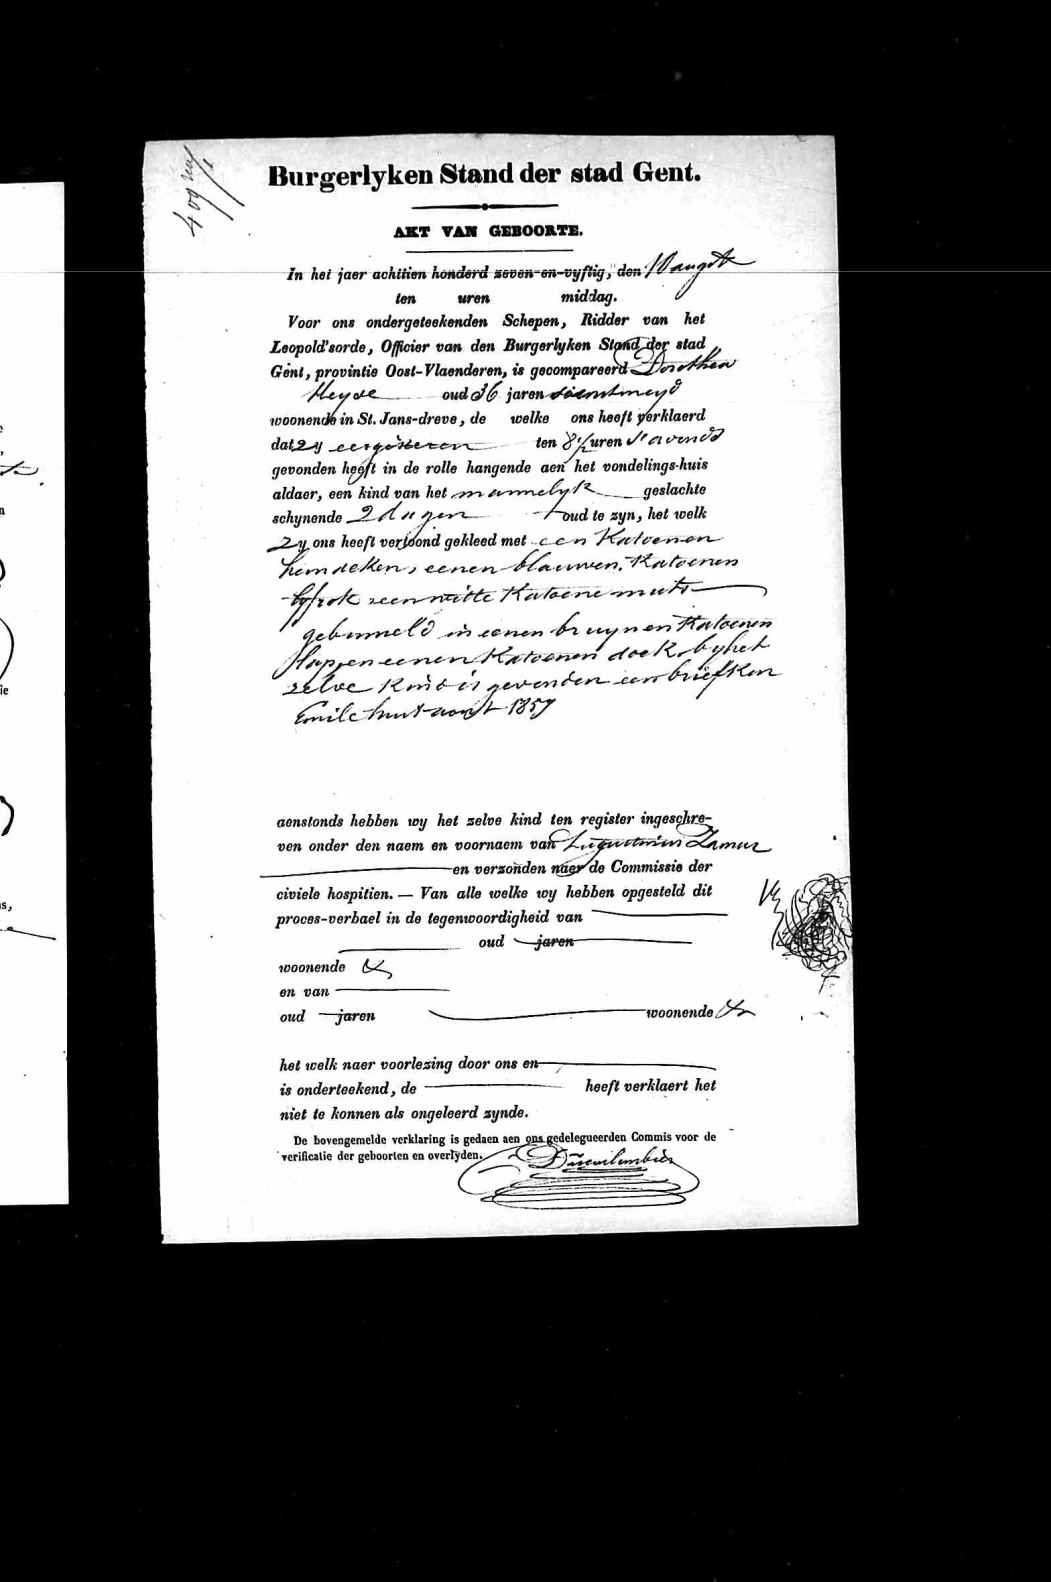 Burgerlyken Stand der stad Gent.
AKT VAN GEBOORTE.
In het jaer achttien honderd zeven-en-vyftig, den 10 augst
ten uren middag.
Voor ons ondergeteekenden Schepen, Ridder van het
Leopold'sorde, Officier van den Burgerlyken Stand der stad
Gent, provintie Oost-Vlaenderen, is gecompareerd Dorothea
Heyde oud 36 jaren dienstmeyd
woonende in St. Jans-dreve, de welke ons heeft verklaerd
dat zy eergisteren ten 8 1/2 uren s'avonds
gevonden heeft in de rolle hangende aen het vondelings-huis
aldaer, een kind van het mannelyk geslachte
schynende 2 dagen oud te zyn, het welk
Zy ons heeft vertoond gekleed met een Katoenen
hemdeken, eenen blauwen Katoenen
lyfrok een witte Katoene muts
gebunneld in eenen bruynen Katoenen
lap, en eenen Katoenen doek, by het
zelve Kind is gevonden een briefken
Emile 1857
aenstonds hebben wy het zelve kind ten register ingeschre-
ven onder den naem en voornaem van Augustinus Zamur
en verzonden naer de Commissie der
civiele hospitien. — Van alle welke wy hebben opgesteld dit
proces-verbael in de tegenwoordigheid van
oud jaren
woonende
en van
oud jaren woonende
het welk naer voorlezing door ons en
is onderteekend, de heeft verklaert het
niet te konnen als ongeleerd zynde.
De bovengemelde verklaring is gedaen aen ons gedelegueerden Commis voor de
verificatie der geboorten en overlyden.